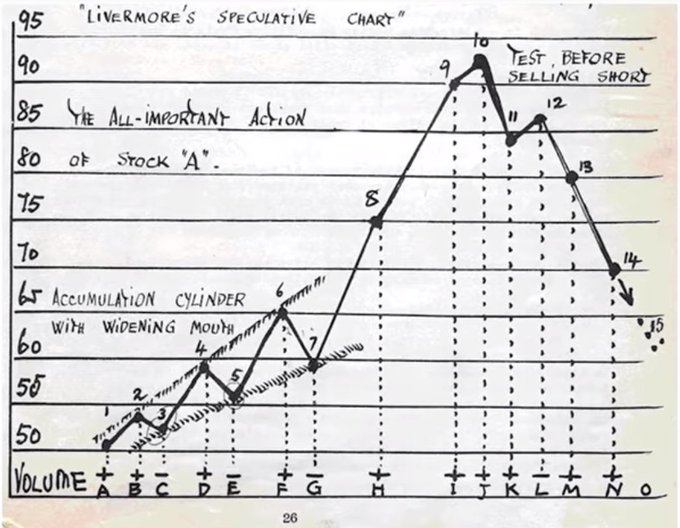 "LIVERMORE'S SPECULATIVE CHART"
95
90
85
80
75
70
65
60
55
50
THE ALL-IMPORTANT ACTION
OF STOCK "A".
TEST, BEFORE
SELLING SHORT
ACCUMULATION CYLINDER
WITH WIDENING MOUTH
1
2
3
4
5
6
7
8
9
10
11
12
13
14
15
VOLUME + + − + − + − + + + + − + +
A B C D E F G H I J K L M N O
26